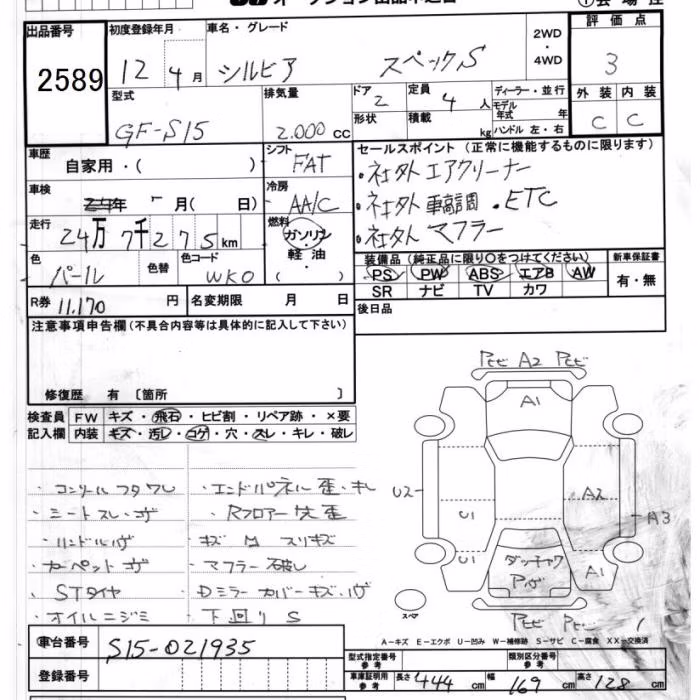 出品番号 初度登録年月 車名・グレード 2WD ・ 4WD 評価点
2589 12年 4月 シルビア スペックS 3
型式 排気量 ドア 2 定員 4人 ディーラー・並行 外装 内装
GF-S15 2.000cc 形状 積載 kg モデル年式 年 ハンドル 左・右 C C
車歴 自家用・( ) シフト FAT セールスポイント(正常に機能するものに限ります)
車検 年 月( 日) 冷房 AA/C ・社外 エアクリーナー
・社外 車高調 ・ETC
走行 24万 7千275km 燃料 ガソリン・軽油・( ) ・社外 マフラー
色 パール 色替 色コード WK0 装備品(純正品に限り〇をつけてください) 新車保証書
PS PW ABS エアB AW 有・無
SR ナビ TV カワ
R券 11.170円 名変期限 月 日 後日品
注意事項申告欄(不具合内容等は具体的に記入して下さい)
修復歴 有〔箇所 〕
検査員 FW キズ・飛石・ヒビ割・リペア跡・×要
記入欄 内装 キズ・汚レ・コゲ・穴・スレ・キレ・破レ
・コンソールフタワレ ・エンドパネル歪・キレ
・シートスレ・コゲ ・Rフロアー 歪
・ハンドルハゲ キズ スリキズ
・カーペットコゲ ・マフラー破レ
・STタイヤ ・Dミラーカバーキズ・ハゲ
・オイルニジミ ・下回りS
A2
A1
U2 U1 A2 A3
U1 A1
スペア
A-キズ E-エクボ U-凹み W-補修跡 S-サビ C-腐食 XX-交換済
車台番号 S15-021935
登録番号
型式指定番号 参考 類別区分番号 参考
車庫証明用 参考 長さ 444cm 幅 169cm 高さ 128cm